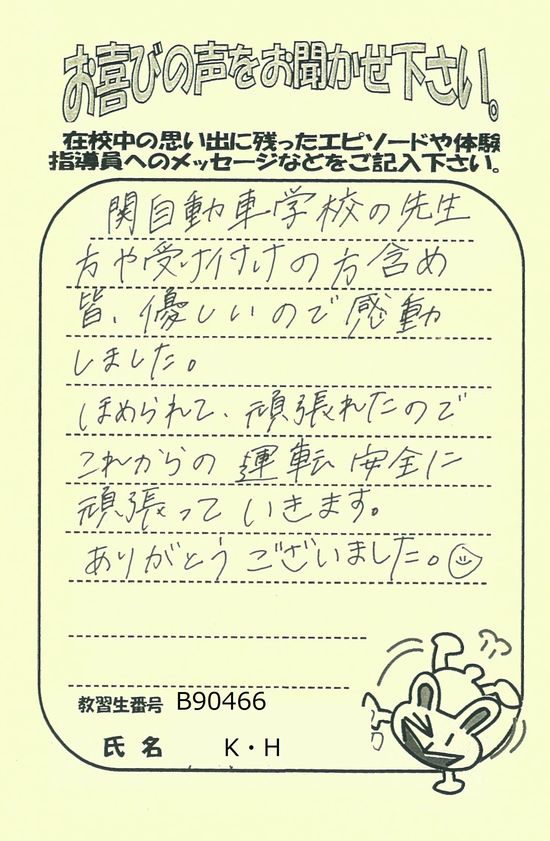 お喜びの声をお聞かせ下さい。
在校中の思い出に残ったエピソードや体験
指導員へのメッセージなどをご記入下さい。
関自動車学校の先生
方や受け付けの方含め
皆、優しいので感動
しました。
ほめられて、頑張れたので
これからの運転安全に
頑張っていきます。
ありがとうございました。
教習生番号 B90466
氏名 K・H